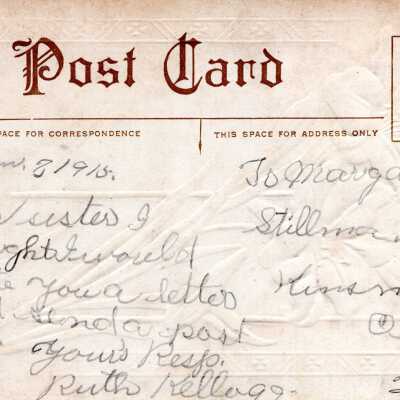 Post Card
PACE FOR CORRESPONDENCE
THIS SPACE FOR ADDRESS ONLY
8 1915.
To Marga
sister I
ght I would
you a letter
send a post
Yours Resp.
Ruth Kellogg.
Stillma
Kinsm